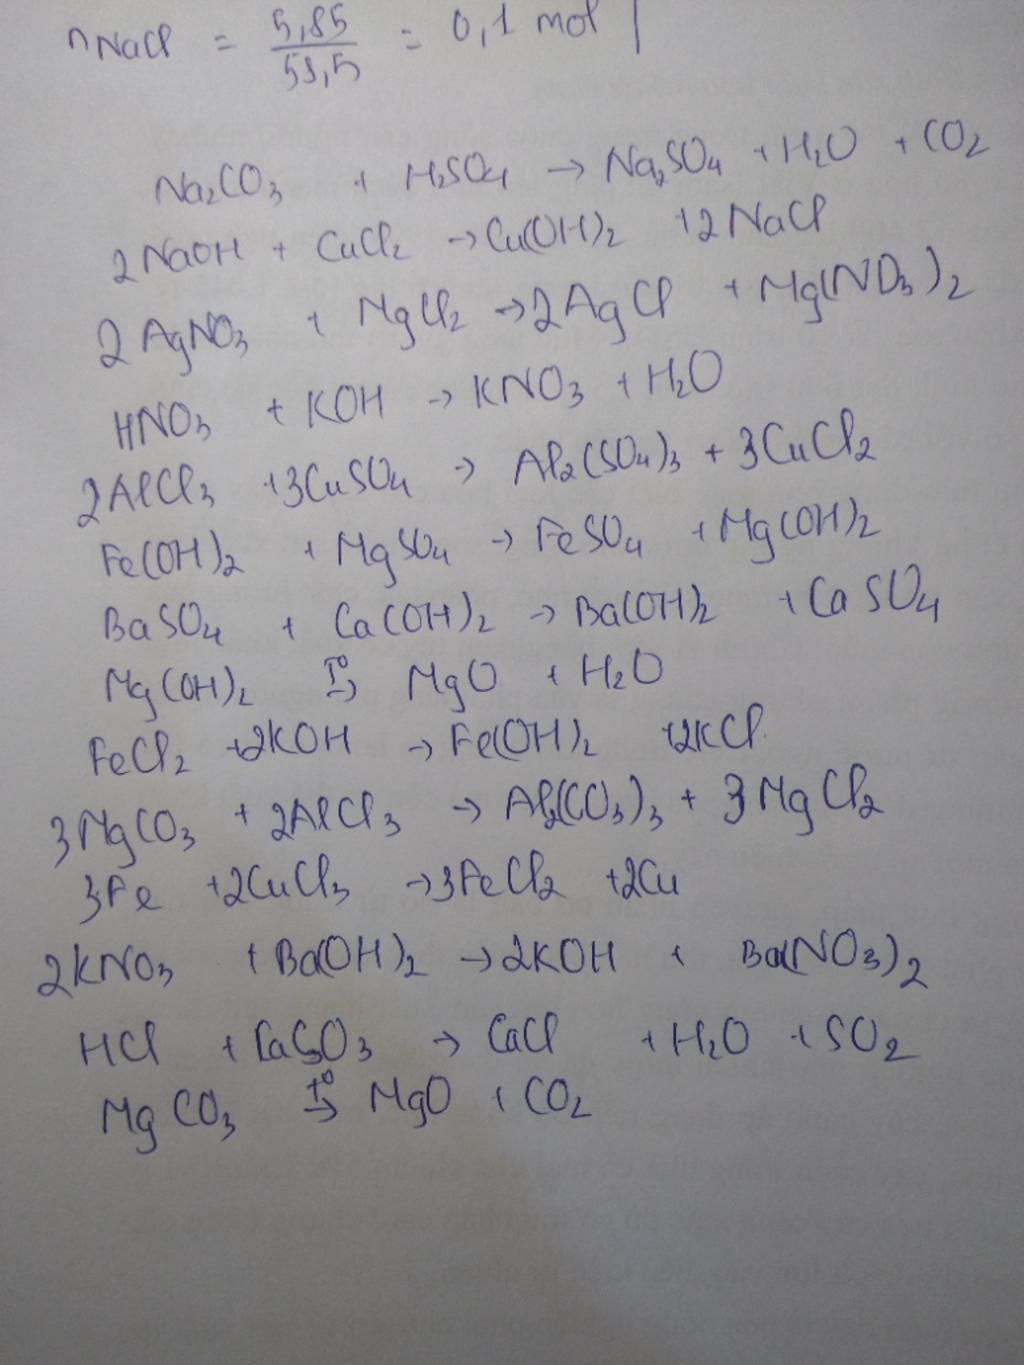 nNaCl = 5,85/58,5 = 0,1 mol
Na₂CO₃ + H₂SO₄ → Na₂SO₄ + H₂O + CO₂
2NaOH + CuCl₂ → Cu(OH)₂ + 2NaCl
2AgNO₃ + MgCl₂ → 2AgCl + Mg(NO₃)₂
HNO₃ + KOH → KNO₃ + H₂O
2AlCl₃ + 3CuSO₄ → Al₂(SO₄)₃ + 3CuCl₂
Fe(OH)₂ + MgSO₄ → FeSO₄ + Mg(OH)₂
BaSO₄ + Ca(OH)₂ → Ba(OH)₂ + CaSO₄
Mg(OH)₂ T° → MgO + H₂O
FeCl₂ + 2KOH → Fe(OH)₂ + 2KCl
3MgCO₃ + 2AlCl₃ → Al₂(CO₃)₃ + 3MgCl₂
3Fe + 2CuCl₃ → 3FeCl₂ + 2Cu
2KNO₃ + Ba(OH)₂ → 2KOH + Ba(NO₃)₂
HCl + CaSO₃ → CaCl + H₂O + SO₂
MgCO₃ t° → MgO + CO₂